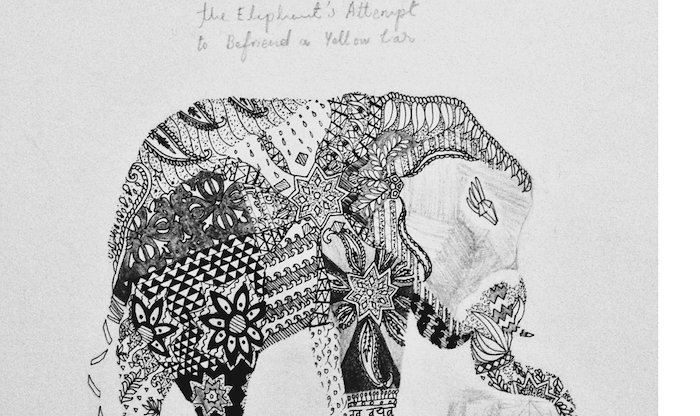 the Elephant's Attempt
to Befriend a Yellow Car